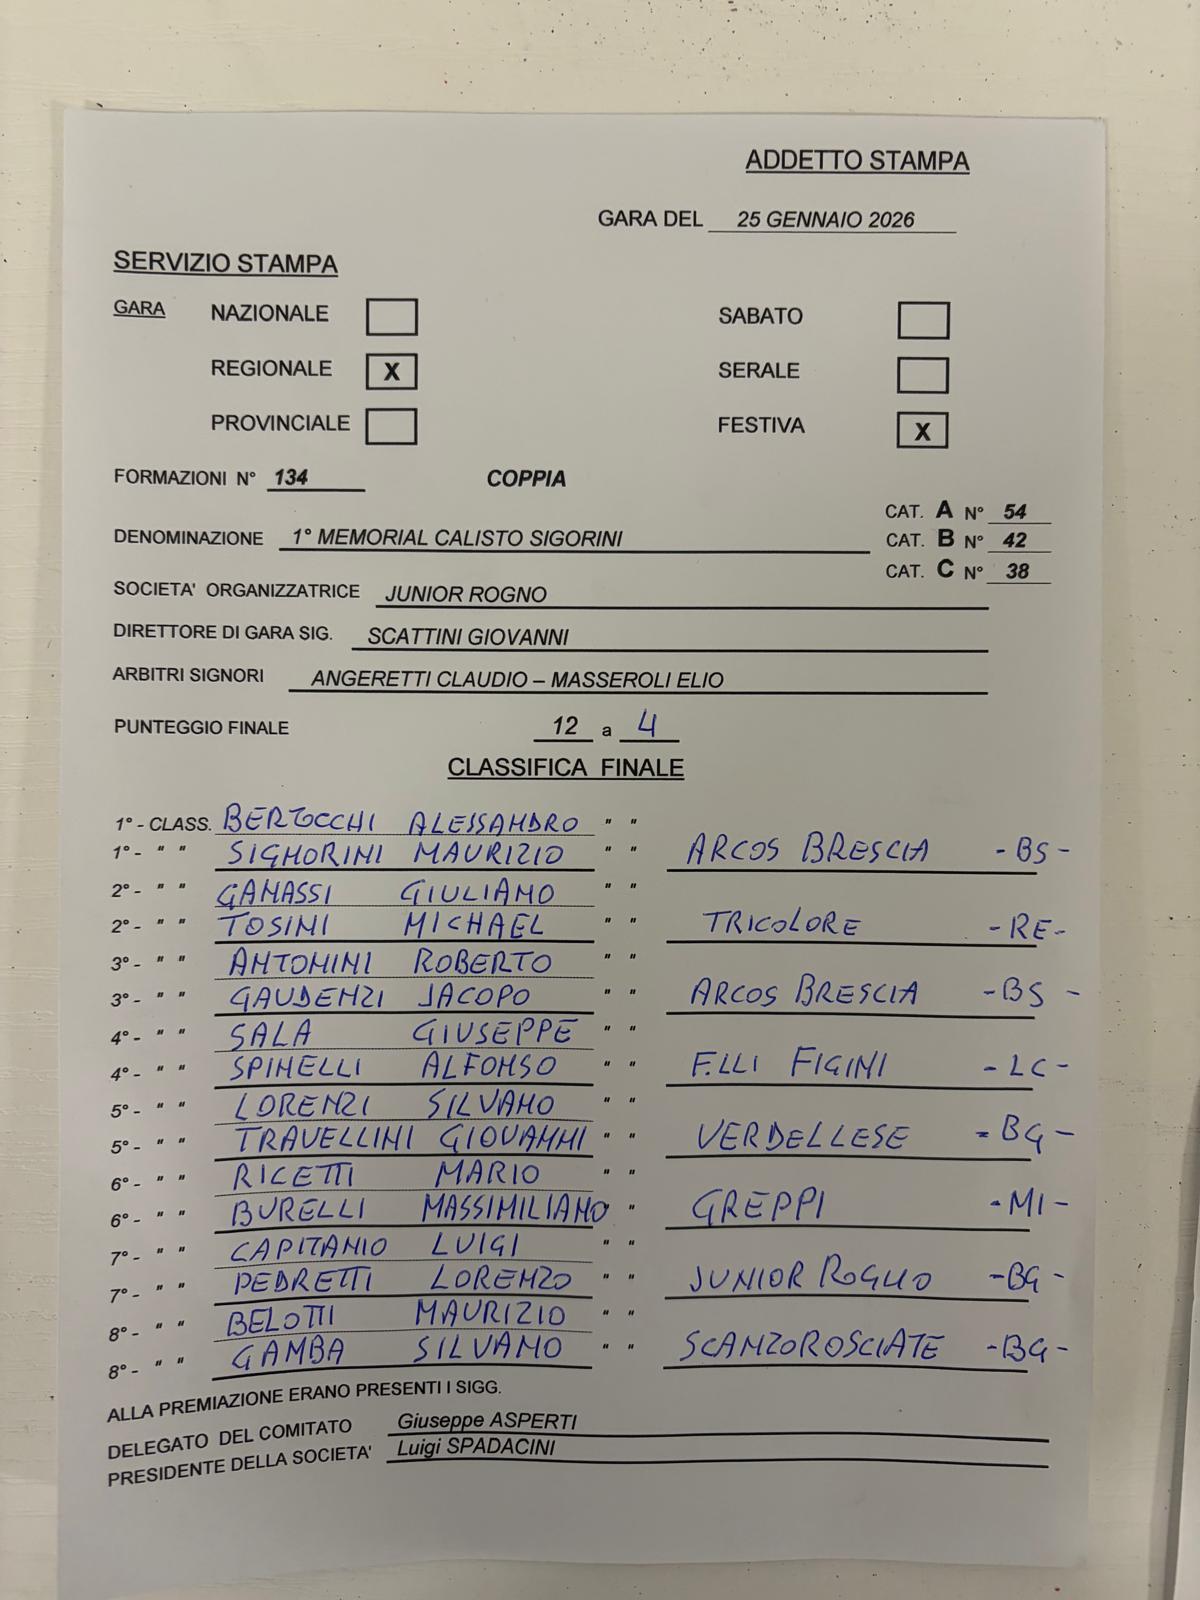 ADDETTO STAMPA
GARA DEL 25 GENNAIO 2026
SERVIZIO STAMPA
GARA NAZIONALE SABATO
REGIONALE X SERALE
PROVINCIALE FESTIVA X
FORMAZIONI N° 134 COPPIA
CAT. A N° 54
DENOMINAZIONE 1° MEMORIAL CALISTO SIGORINI CAT. B N° 42
CAT. C N° 38
SOCIETA' ORGANIZZATRICE JUNIOR ROGNO
DIRETTORE DI GARA SIG. SCATTINI GIOVANNI
ARBITRI SIGNORI ANGERETTI CLAUDIO – MASSEROLI ELIO
PUNTEGGIO FINALE 12 a 4
CLASSIFICA FINALE
1° - CLASS. BERTOCCHI ALESSANDRO " "
1° - " " SIGNORINI MAURIZIO " " ARCOS BRESCIA - BS -
2° - " " GANASSI GIULIANO " "
2° - " " TOSINI MICHAEL " " TRICOLORE - RE -
3° - " " ANTONINI ROBERTO " "
3° - " " GAUDENZI JACOPO " " ARCOS BRESCIA - BS -
4° - " " SALA GIUSEPPE " "
4° - " " SPINELLI ALFONSO " " F.LLI FIGINI - LC -
5° - " " LORENZI SILVANO " "
5° - " " TRAVELLINI GIOVANNI " " VERDELLESE - BG -
6° - " " RICETTI MARIO " "
6° - " " BURELLI MASSIMILIANO " GREPPI - MI -
7° - " " CAPITANIO LUIGI " "
7° - " " PEDRETTI LORENZO " " JUNIOR ROGNO - BG -
8° - " " BELOTTI MAURIZIO " "
8° - " " GAMBA SILVANO " " SCANZOROSCIATE - BG -
ALLA PREMIAZIONE ERANO PRESENTI I SIGG.
DELEGATO DEL COMITATO Giuseppe ASPERTI
PRESIDENTE DELLA SOCIETA' Luigi SPADACINI